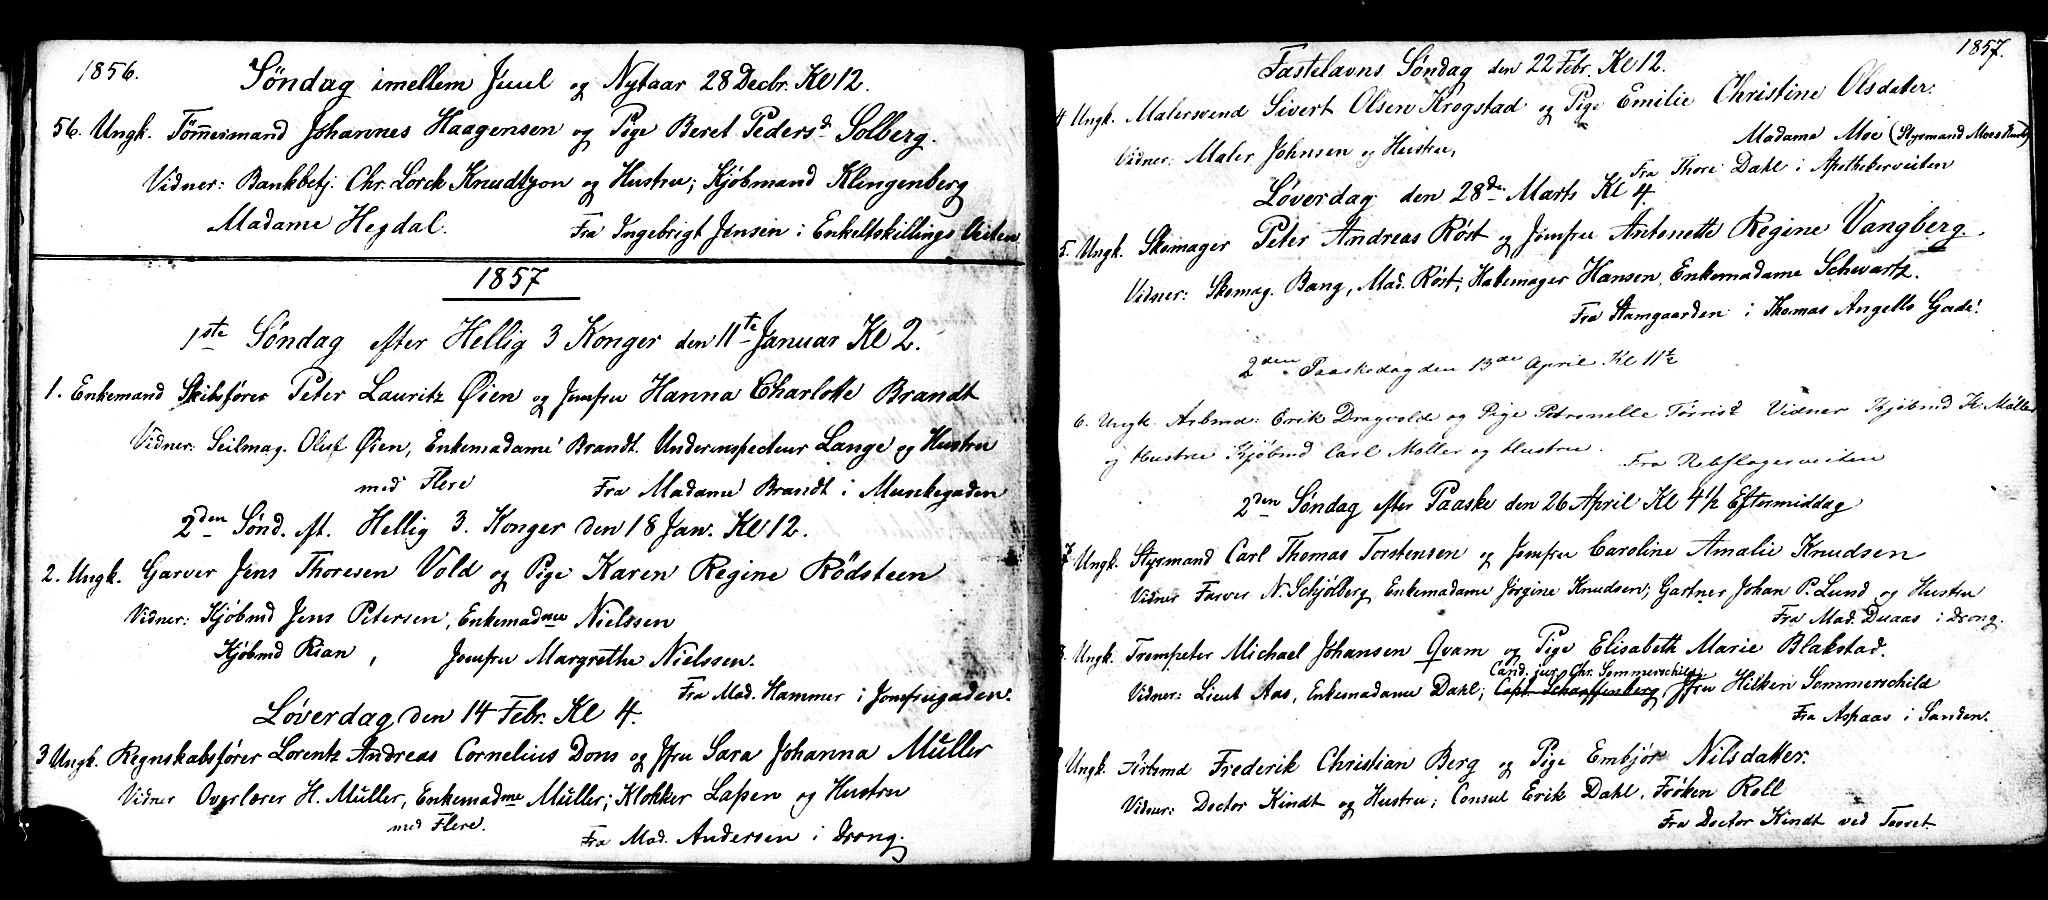 1856.
Söndag imellem Juul og Nytaar 28 Decbr. Kl 12.
56. Ungk. Tömmermand Johannes Haagensen og Pige Beret Peders d. Solberg.
Vidner: Bankbetj. Chr. Lorck Knudtzon og Hustru; Kjöbmand Klingenberg
Madame Hegdal. Fra Ingebrigt Jensen i Enkeltskillings Veiten
1857
1ste Søndag efter Hellig 3 Konger den 11te Januar Kl 2.
1. Enkemand Skibsfører Peter Lauritz Øien og Jomfru Hanna Charlotte Brandt
Vidner: Seilmag. Oluf Øien, Enkemadame Brandt. Underinspecteur Lange og Hustru
med Flere Fra Madame Brandt i Munkegaden
2den Sønd. eft. Hellig 3. Konger den 18 Jan. Kl 12.
2. Ungk. Garver Jens Thoresen Vold og Pige Karen Regine Rödsteen
Vidner: Kjöbmd Jens Petersen, Enkemadme Nielssen
Kjöbmd Rian, Jomfru Margrethe Nielssen.
Fra Mad. Hammer i Jomfrugaden.
Løverdag den 14 Febr. Kl 4.
3 Ungk. Regnskabsfører Lorentz Andreas Cornelius Dons og Jfru Sara Johanna Müller
Vidner Overlærer H. Müller, Enkemadme Müller; Klokker Lassen og Hustru
med Flere. Fra Mad. Andersen i Drong.
1857.
Fastelavns Søndag den 22 Febr. Kl 12.
4 Ungk. Malersvend Sivert Olsen Krogstad og Pige Emilie Christine Olsdatter.
Vidner: Maler Johnsen og Hustru, Madame Moe (Styrmand Moes
Fra Thore Dahl i Apothekerveiten
Løverdag den 28de Marts Kl 4.
5. Ungk. Skomager Peter Andreas Röst og Jomfru Antonette Regine Vangberg.
Vidner: Skomag. Bang, Mad. Röst; Hattemager Hansen, Enkemadame Schwartz.
Fra Stamgaarden i Thomas Angells Gade.
2den Paaskedag den 13de April Kl 11½
6. Ungk. Arbmd: Erik Dragvolds og Pige Petronelle Torris d. Vidner Kjöbmd K. Möller
og Hustru Kjöbmd Carl Möller og Hustru.
Fra Rebslagerveiten
2den Søndag efter Paaske den 26 April Kl 4½ Eftermiddag
7 Ungk. Styrmand Carl Thomas Torstensen og Jomfru Caroline Amalie Knudsen
Vidner Farver N. Schjölberg, Enkemadame Jörgine Knudsen; Gartner Johan P. Lund og Hustru
Fra Mad. Duaas i Drong.
8. Ungk. Trompeter Michael Johansen Qvam og Pige Elisabeth Marie Blakstad.
Cand. jur. Chr. Sommerschild
Vidner: Lieut Aas, Enkemadame Dahl; Capt. Schaffenberg, Jfru Hilken Sommerschild
Fra Aspaas i Sanden.
Ungk. Arbmd Frederik Christian Berg og Pige Embjör Nilsdatter.
Vidner: Doctor Kindt og Hustru; Consul Erik Dahl, Frøken Roll
Fra Doctor Kindt ved Torvet.